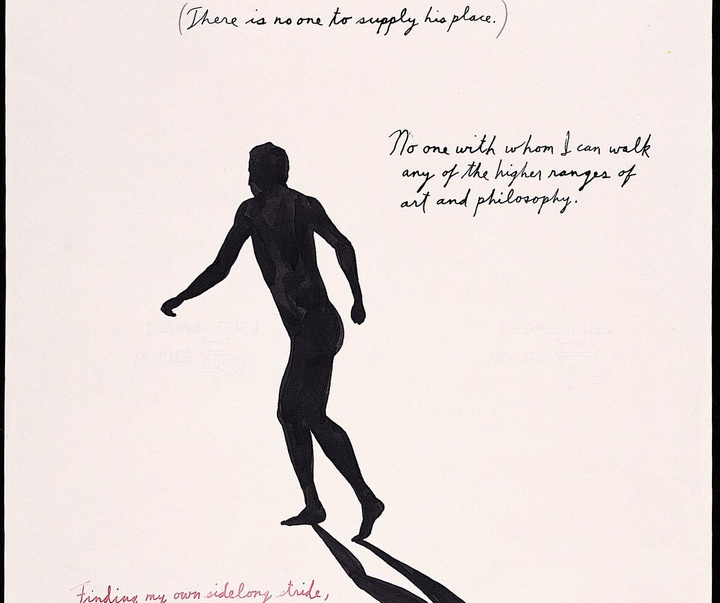 (There is no one to supply his place.)
No one with whom I can walk
any of the higher ranges of
art and philosophy.
Finding my own sidelong stride,